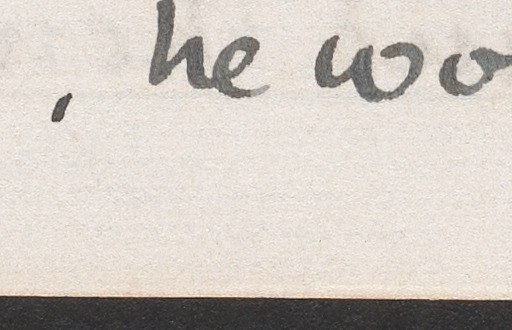 , he wo